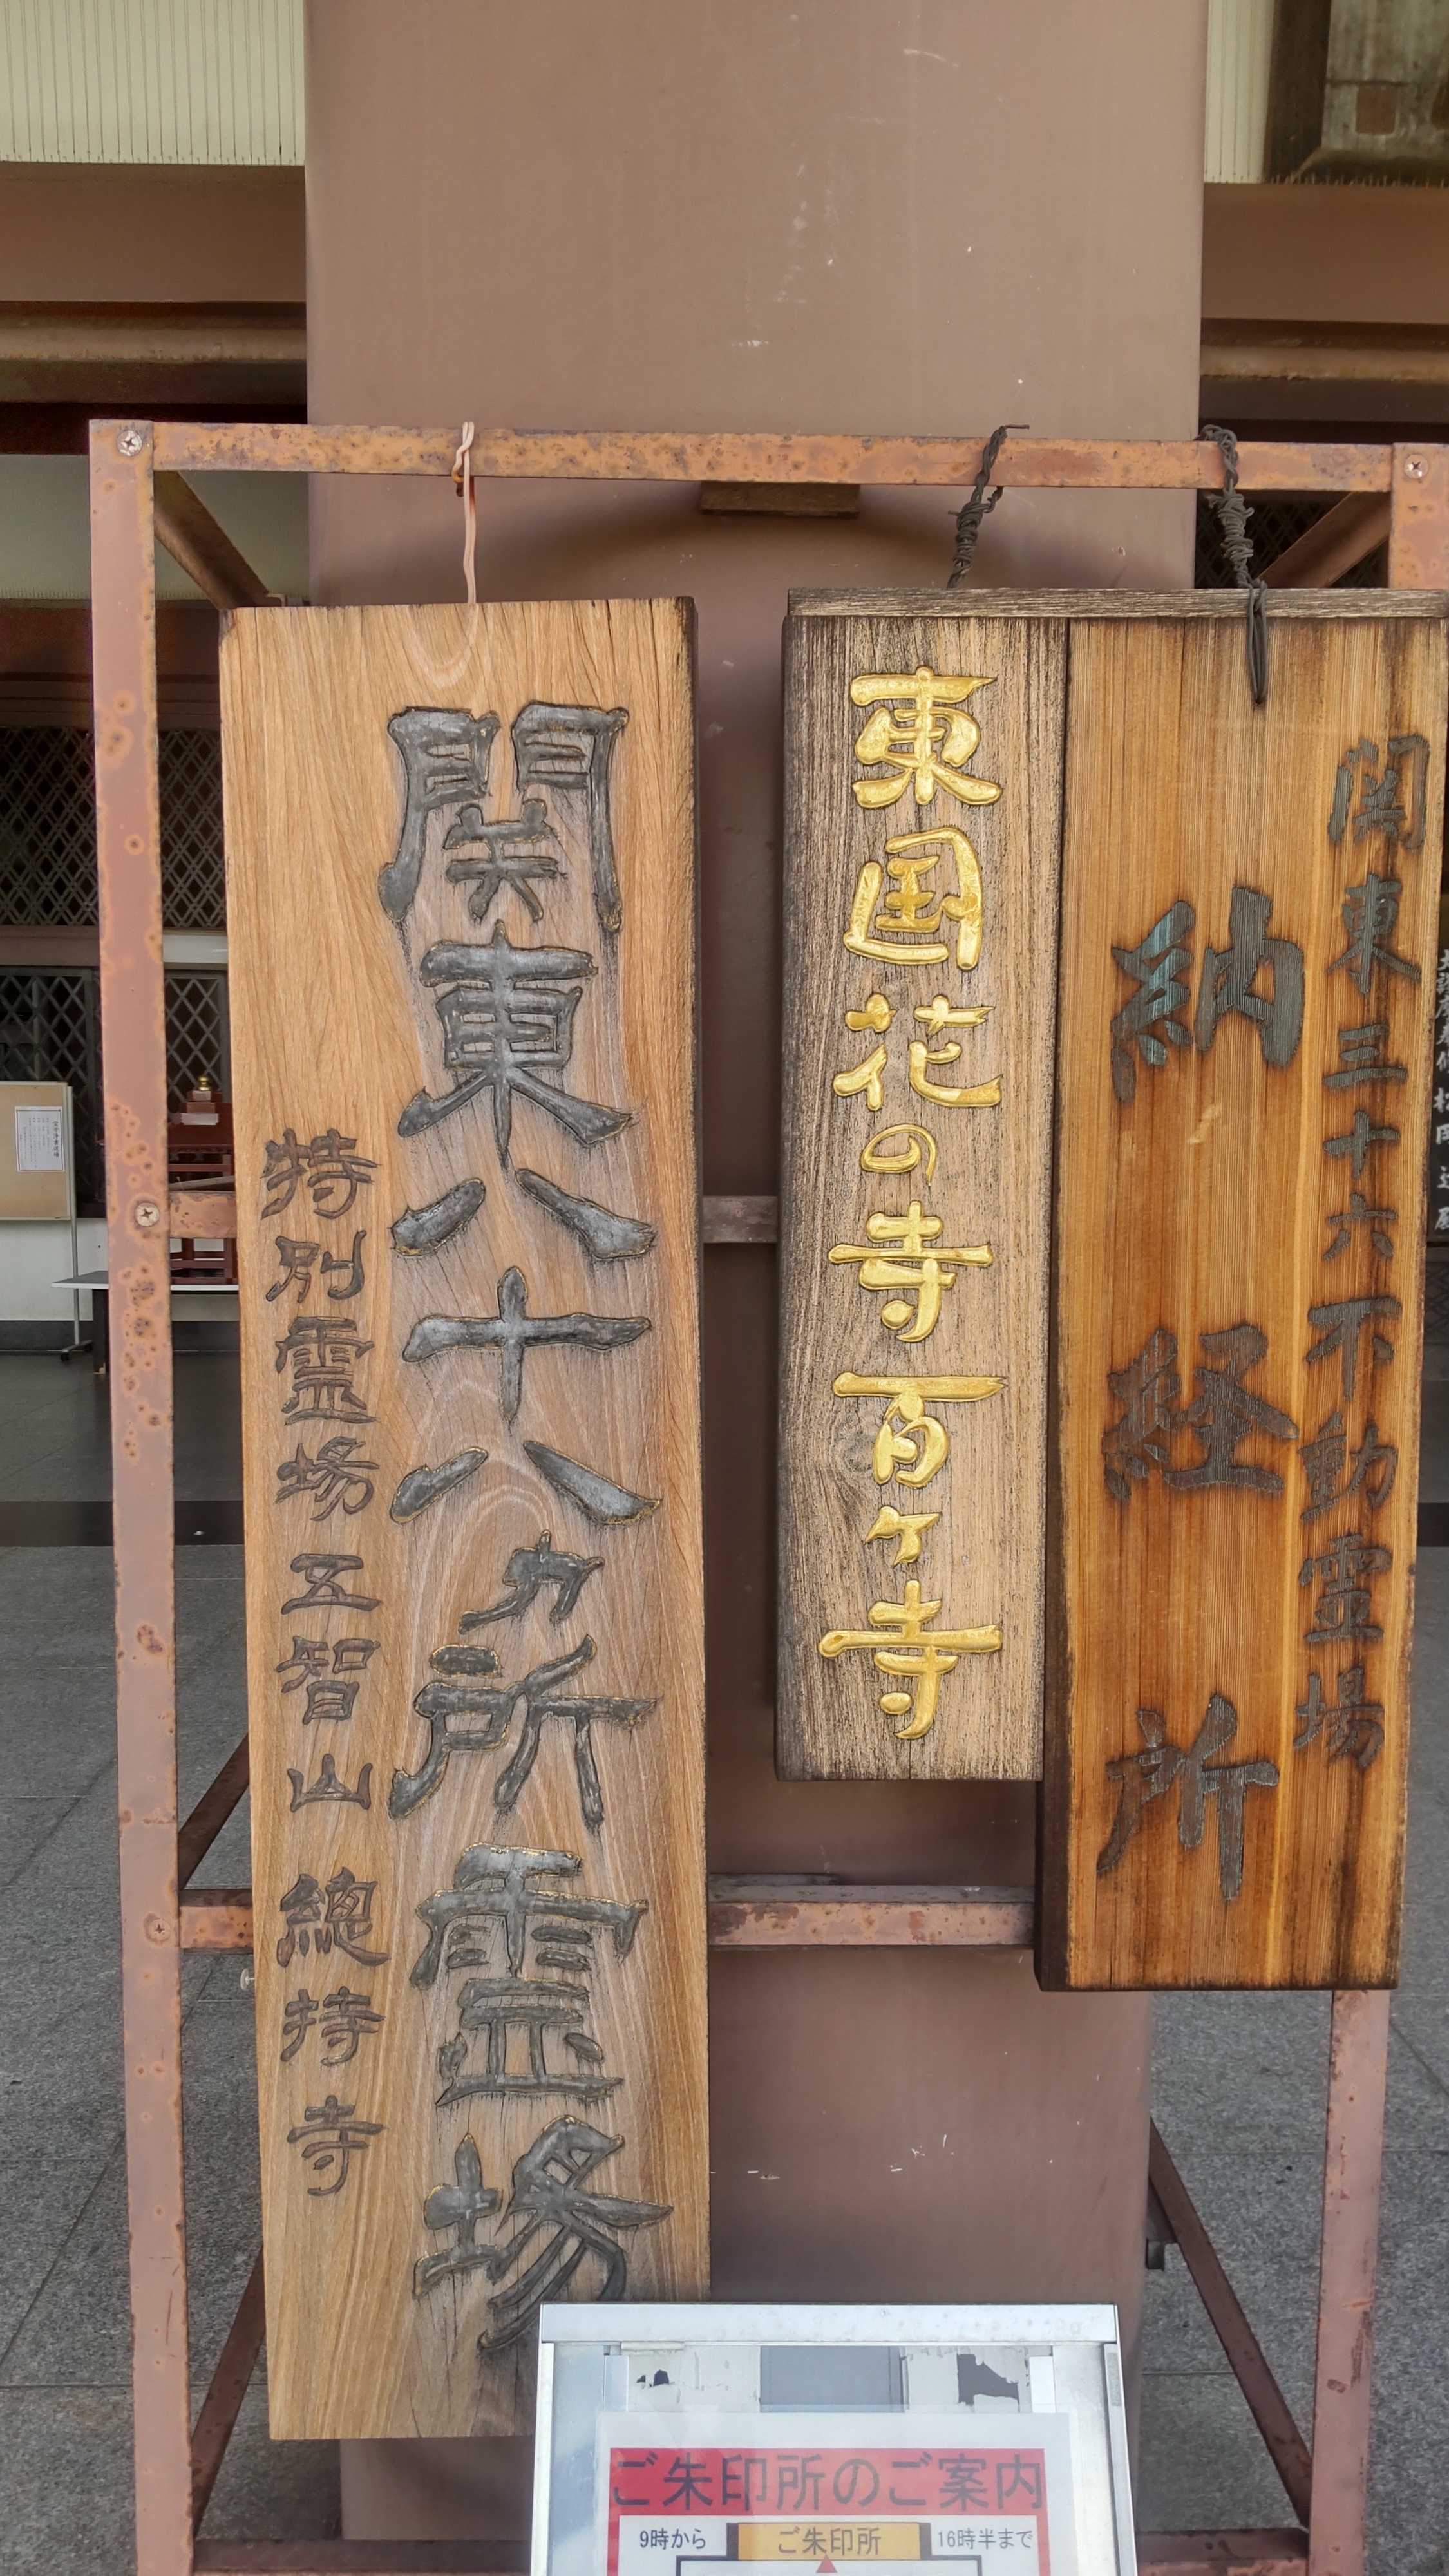 関東三十六不動霊場
納経所
東国花の寺百ヶ寺
関東八十八カ所霊場
特別霊場 五智山 總持寺
ご朱印所のご案内
9時から
ご朱印所
16時半まで